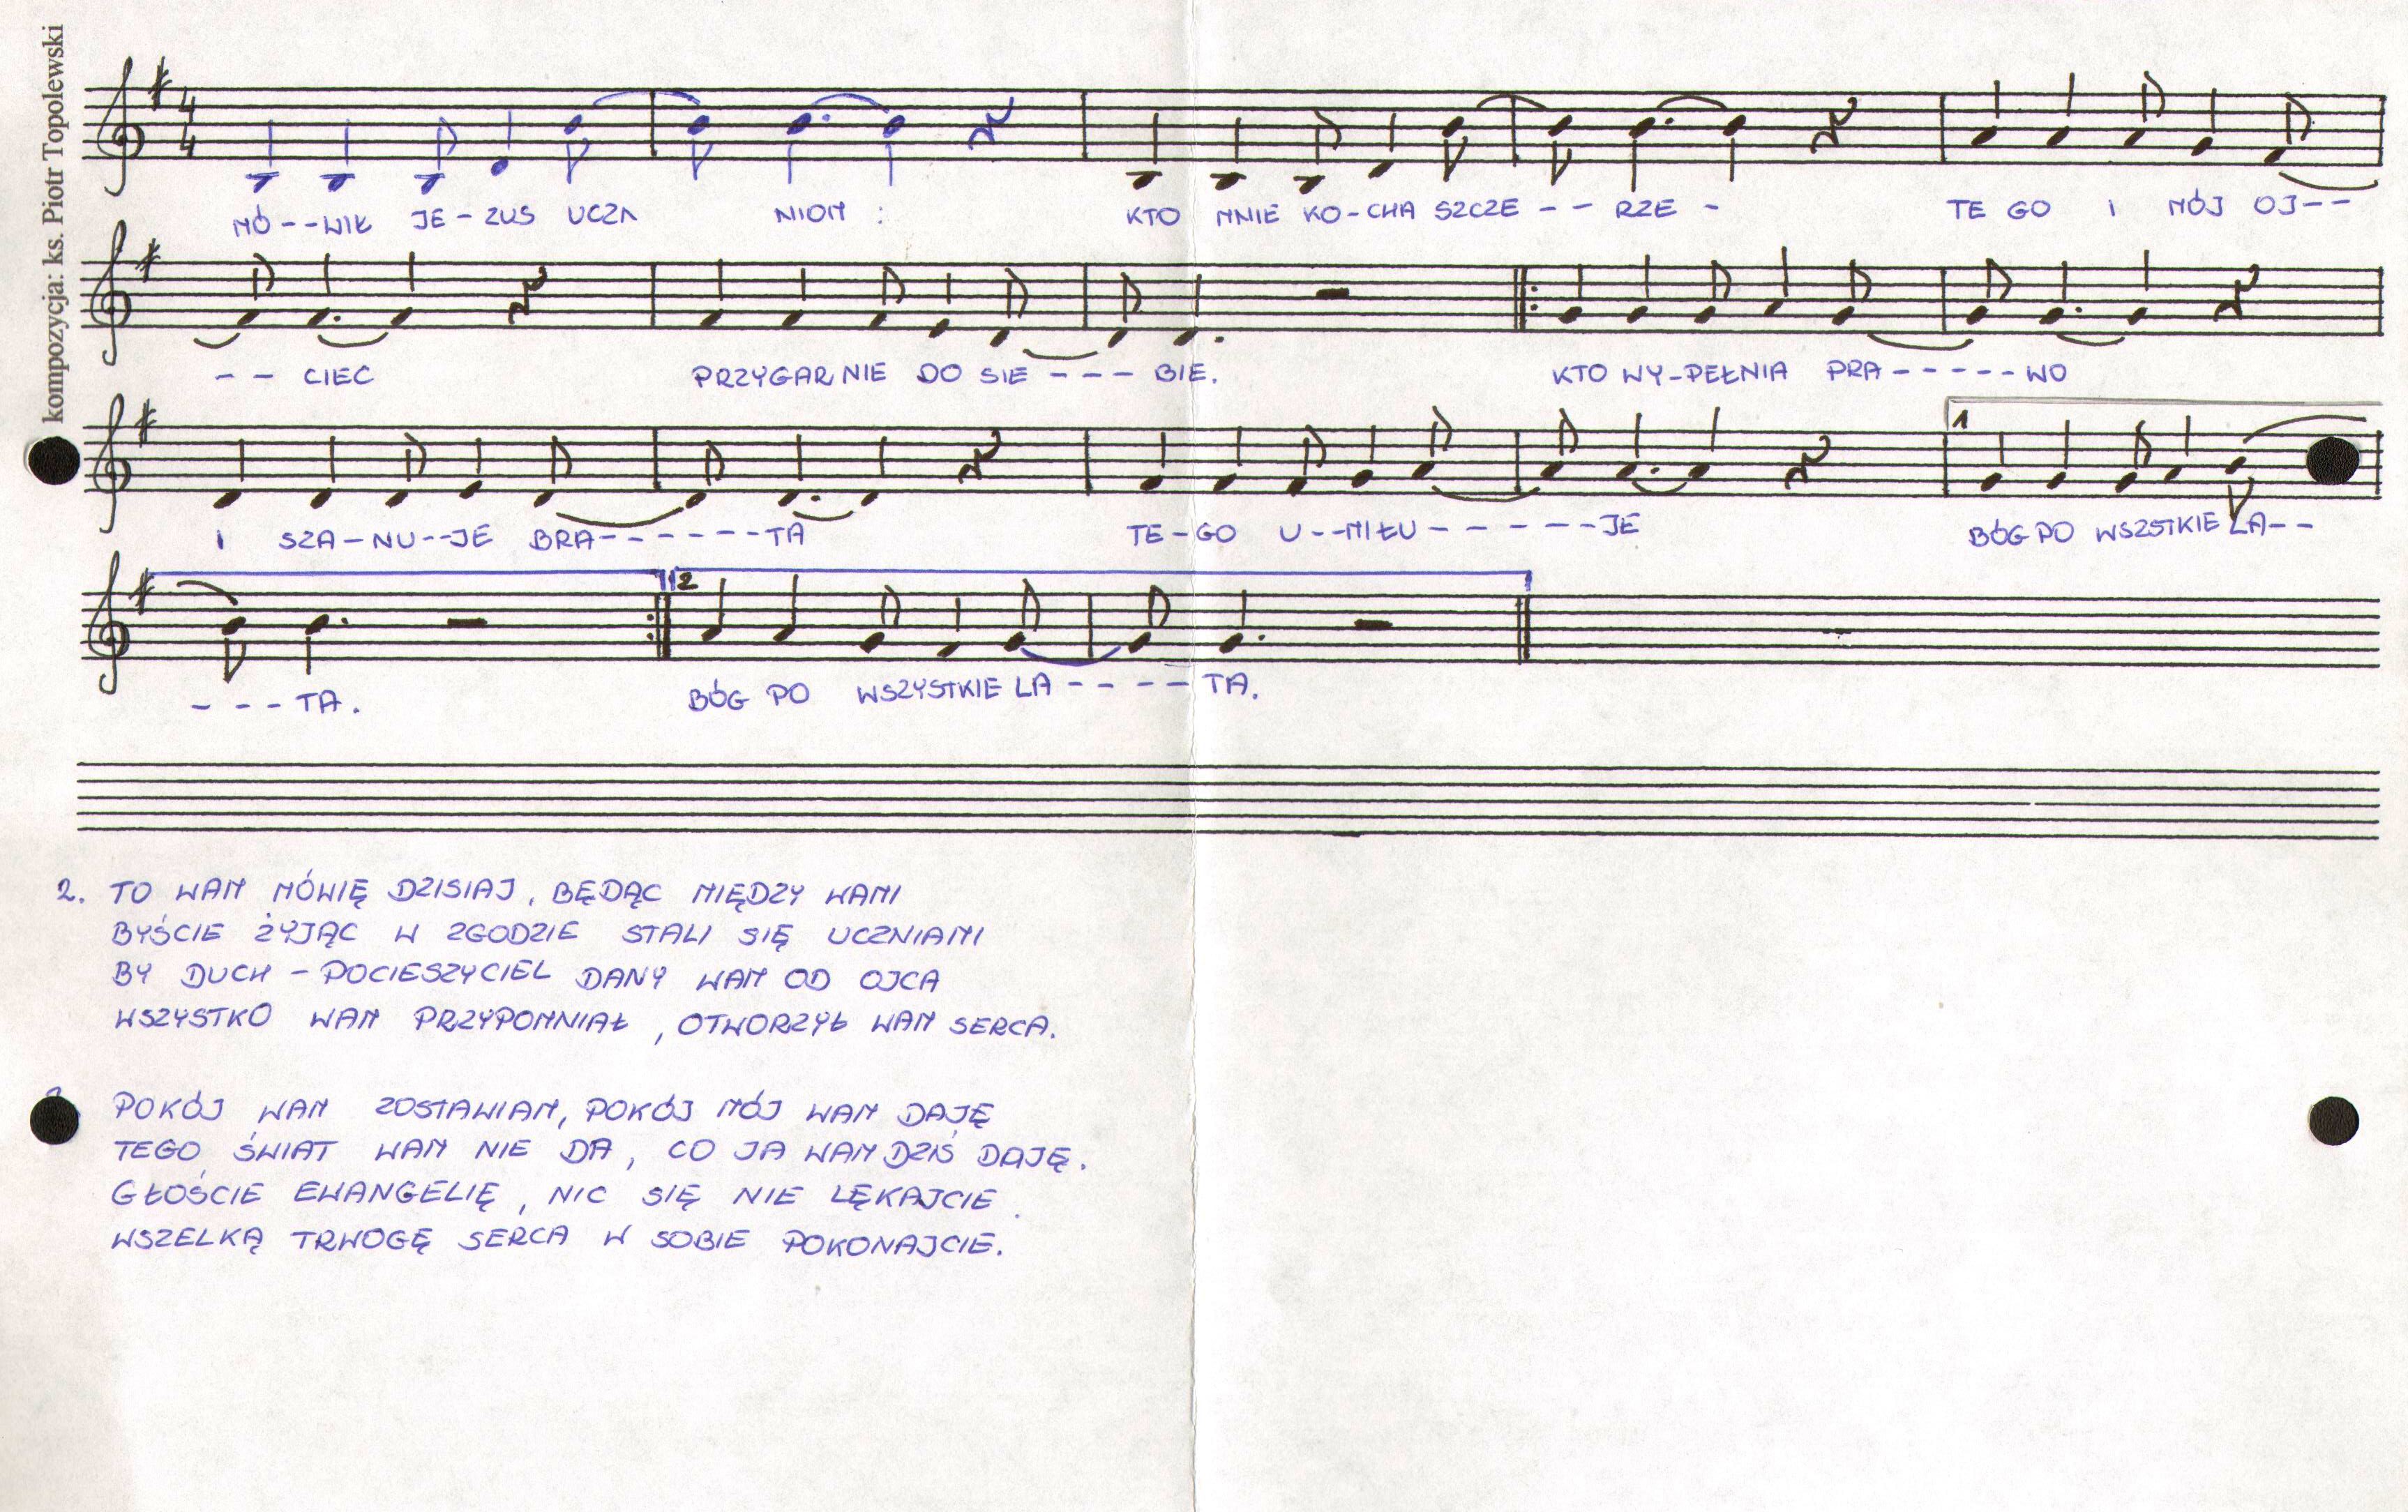 kompozycja: ks. Piotr Topolewski
4
4
MÓ--WIŁ JE-ZUS UCZN NIOM : KTO MNIE KO-CHA SZCZE -- RZE - TE GO I MÓJ OJ--
-- CIEC PRZYGAR NIE DO SIE --- BIE. KTO WY-PEŁNIA PRA-----WO
1
I SZA-NU--JE BRA-------TA TE-GO U--MIŁU------JE BÓG PO WSZSTKIE LA--
2
---TA. BÓG PO WSZYSTKIE LA ---- TA.
2. TO WAM MÓWIĘ DZISIAJ, BĘDĄC MIĘDZY WAMI
BYŚCIE ŻYJĄC W ZGODZIE STALI SIĘ UCZNIAMI
BY DUCH - POCIESZYCIEL DANY WAM OD OJCA
WSZYSTKO WAM PRZYPOMNIAŁ, OTWORZYŁ WAM SERCA.
POKÓJ WAM ZOSTAWIAM, POKÓJ MÓJ WAM DAJĘ
TEGO ŚWIAT WAM NIE DA, CO JA WAM DZIŚ DAJĘ.
GŁOŚCIE EWANGELIĘ, NIC SIĘ NIE LĘKAJCIE.
WSZELKĄ TRWOGĘ SERCA W SOBIE POKONAJCIE.